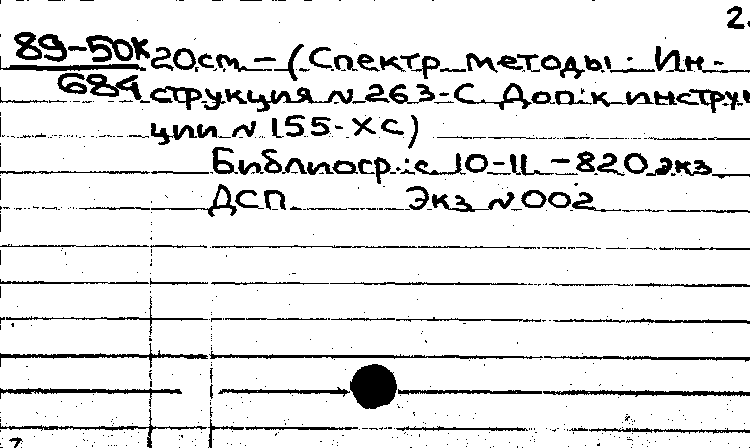 2.
89-50к 20cm. – (Спектр. методы: Ин-
684 струкция № 263-С. Доп. к инстру
ции № 155-ХС)
Библиогр.: с. 10-11. – 820 экз.
ДСП. Экз. № 002